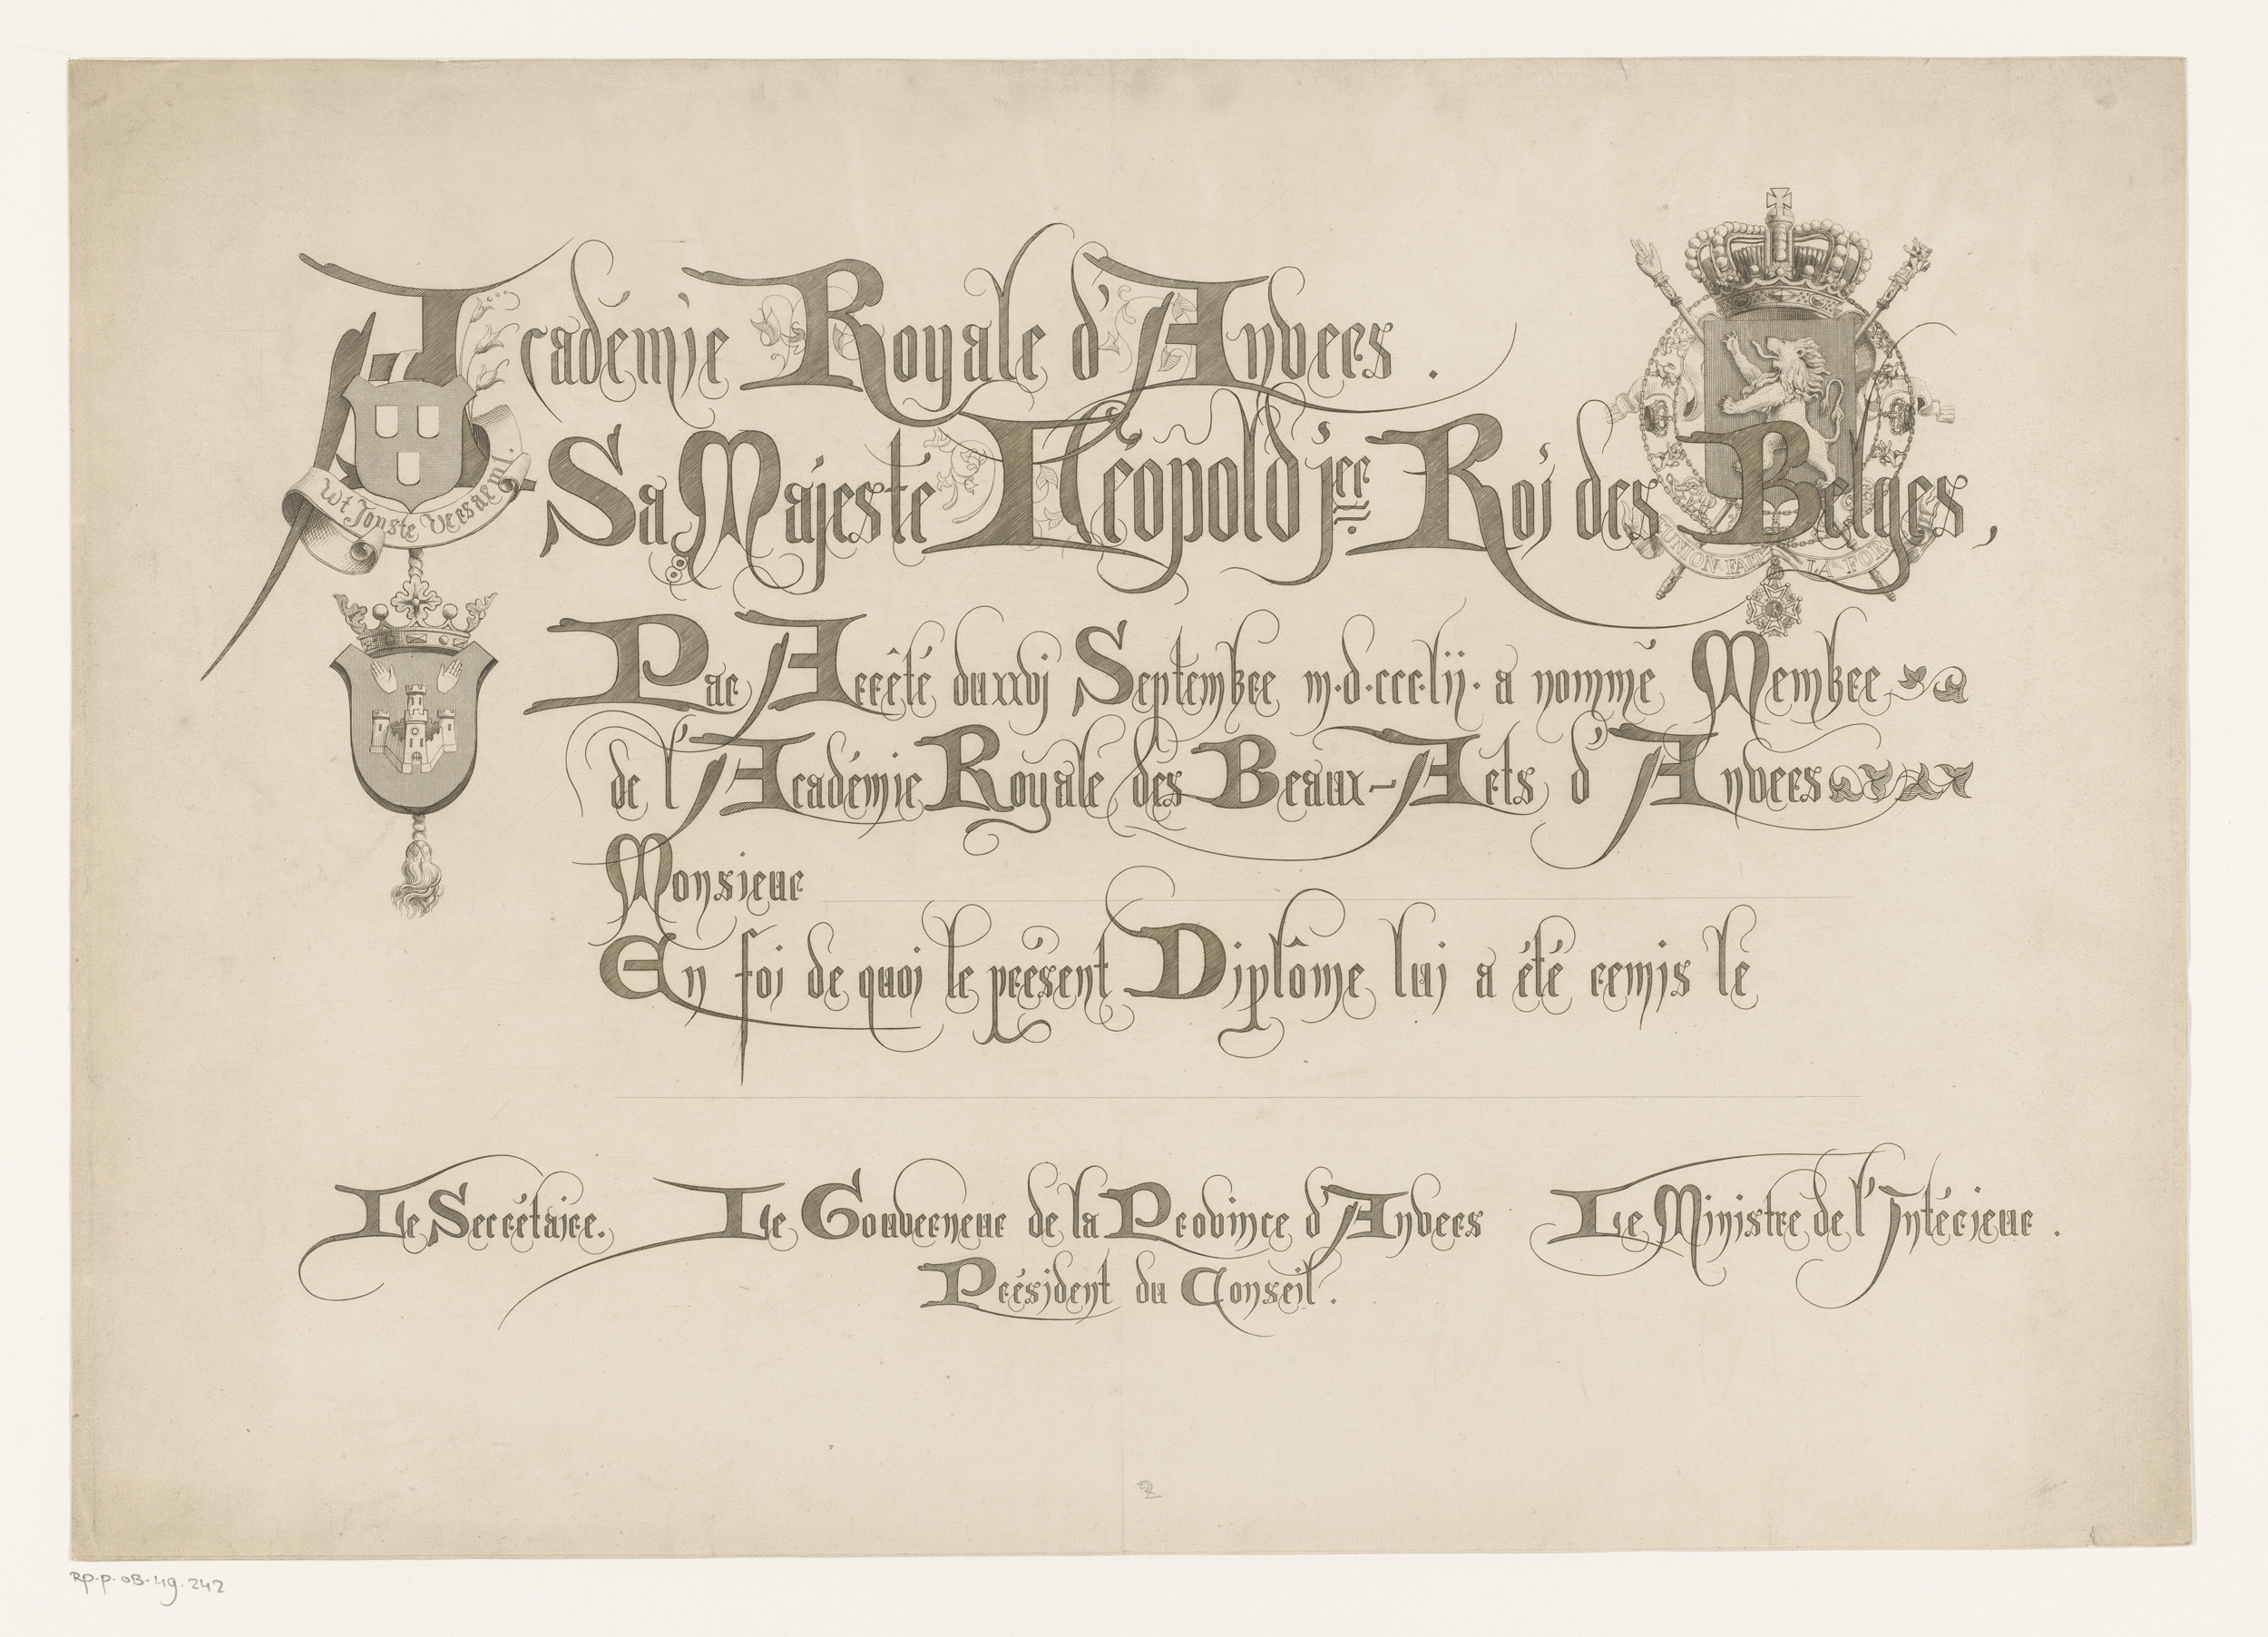 Académie Royale d'Anvers.
Wt Jonste Versaemt.
Sa Majesté Léopold ier Roi des Belges,
UNION FAIT LA FOR
Par Arrêté du xxvj Septembre m·d·ccc·lii· a nommé Membre
de l'Académie Royale des Beaux-Arts d'Anvers
Monsieur
En foi de quoi le présent Diplôme lui a été remis le
Le Secrétaire. Le Gouverneur de la Province d'Anvers Le Ministre de l'Intérieur.
Président du Conseil.
2
RP-P-OB-49.242